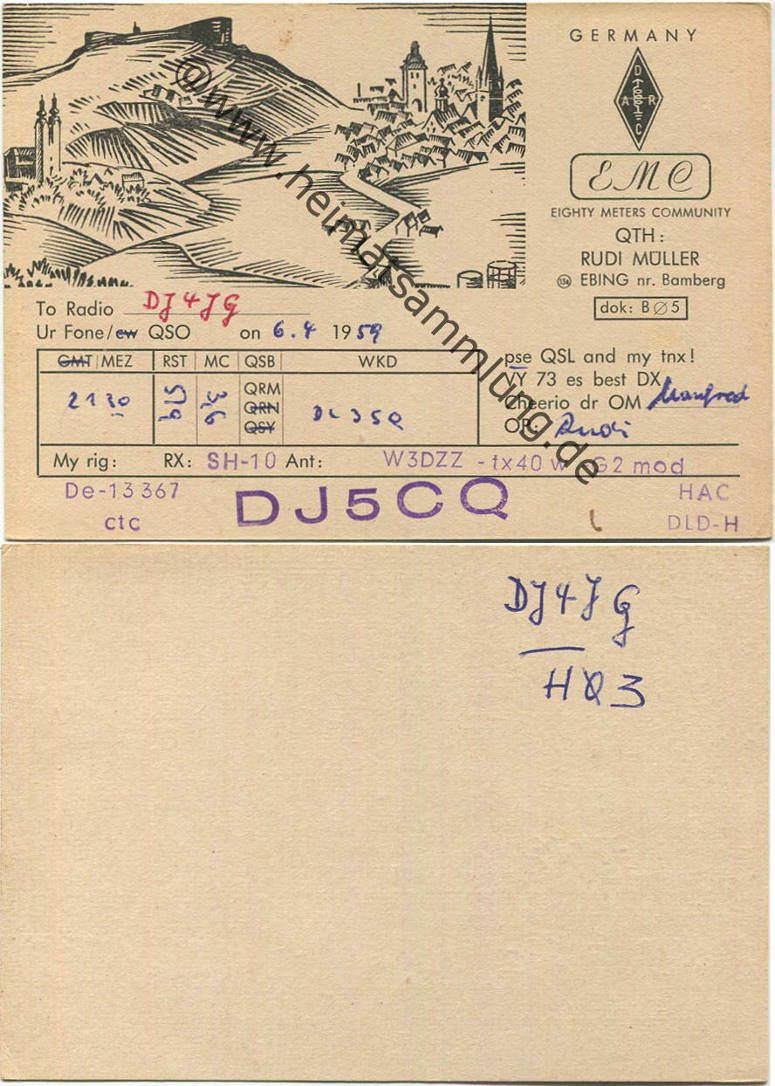 GERMANY
DARC
EMC
EIGHTY METERS COMMUNITY
QTH:
RUDI MÜLLER
13a EBING nr. Bamberg
dok: BØ5
To Radio DJ4JG
Ur Fone/cw QSO on 6.4 1959
GMT/MEZ RST MC QSB WKD
2130 59 3,6 QRM QRN QSY DL3SQ
pse QSL and my tnx!
VY 73 es best DX
Cheerio dr OM Manfred
OP: Rudi
My rig: RX: SH-10 Ant: W3DZZ - tx40 w G2 mod
De-13367 HAC
ctc DJ5CQ DLD-H
@www.heimatsammlung.de
DJ4JG
HØ3